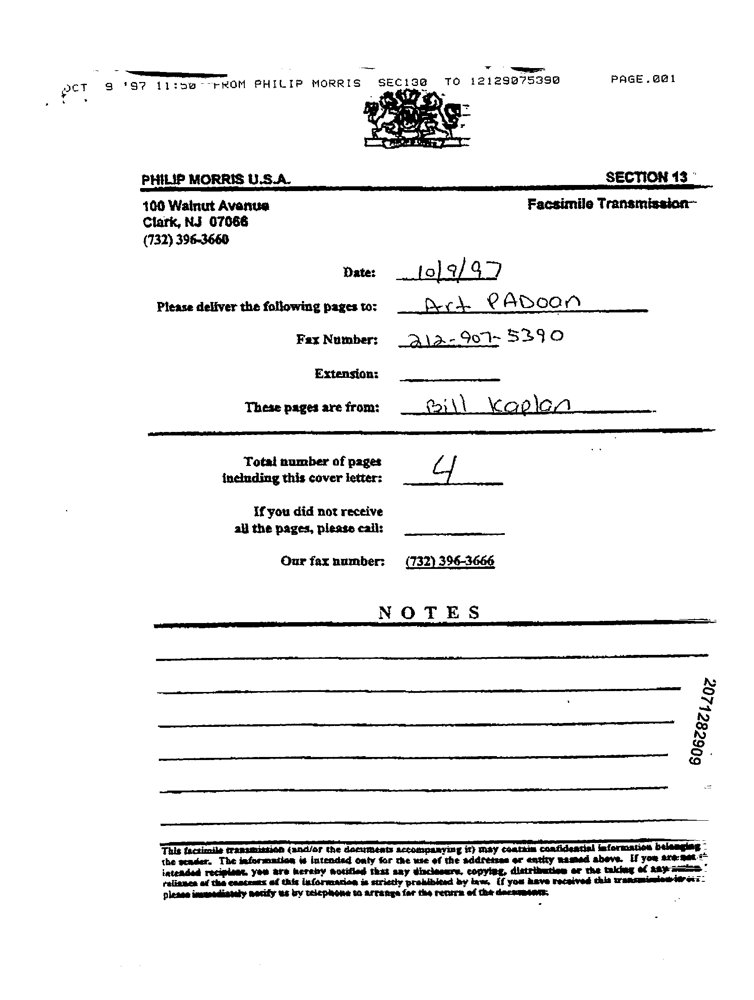 OCT 9 '97 11:50 FROM PHILIP MORRIS SEC130 TO 12129075390 PAGE.001
PHILIP MORRIS U.S.A. SECTION 13
100 Walnut Avenue Facsimile Transmission
Clark, NJ 07066
(732) 396-3660
Date: 10/9/97
Please deliver the following pages to: Art PADoon
Fax Number: 212-907-5390
Extension:
These pages are from: Bill Kaplan
Total number of pages
including this cover letter: 4
If you did not receive
all the pages, please call:
Our fax number: (732) 396-3666
NOTES
2071282909
This facsimile transmission (and/or the documents accompanying it) may contain confidential information belonging
the sender. The information is intended only for the use of the addressee or entity named above. If you are not
intended recipient, you are hereby notified that any disclosure, copying, distribution or the taking of any action
reliance of the contents of this information is strictly prohibited by law. If you have received this transmission
please immediately notify us by telephone to arrange for the return of the documents.